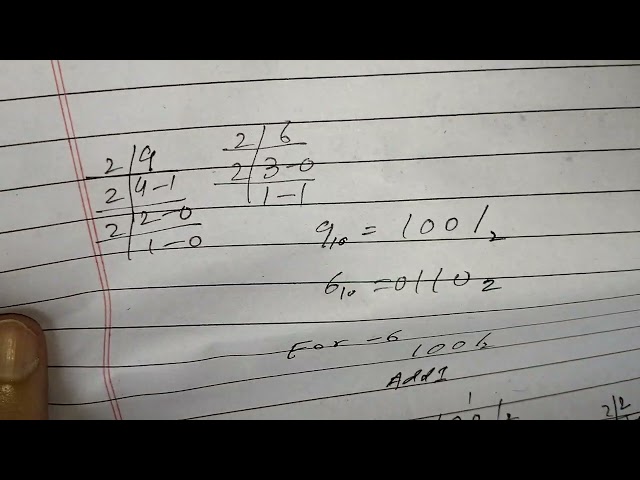 2 | 9
2 | 4 - 1
2 | 2 - 0
1 - 0
2 | 6
2 | 3 - 0
1 - 1
9₁₀ = 1001₂
6₁₀ = 0110₂
For -6
1001₂
Add 1
1
2 | 2